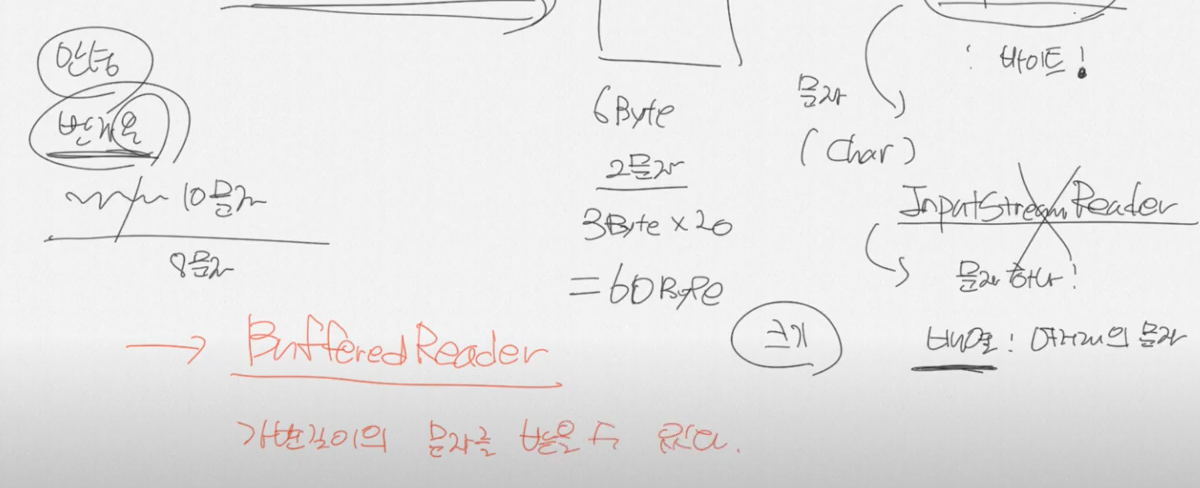 안녕
반가운
10문자
8문자
6Byte
2문자
3Byte × 20
= 60Byte
크기
: 바이트!
문자
(Char)
InputStreamReader
문자 하나!
배열 : 여러개의 문자
→ BufferedReader
가변길이의 문자를 받을 수 있다.